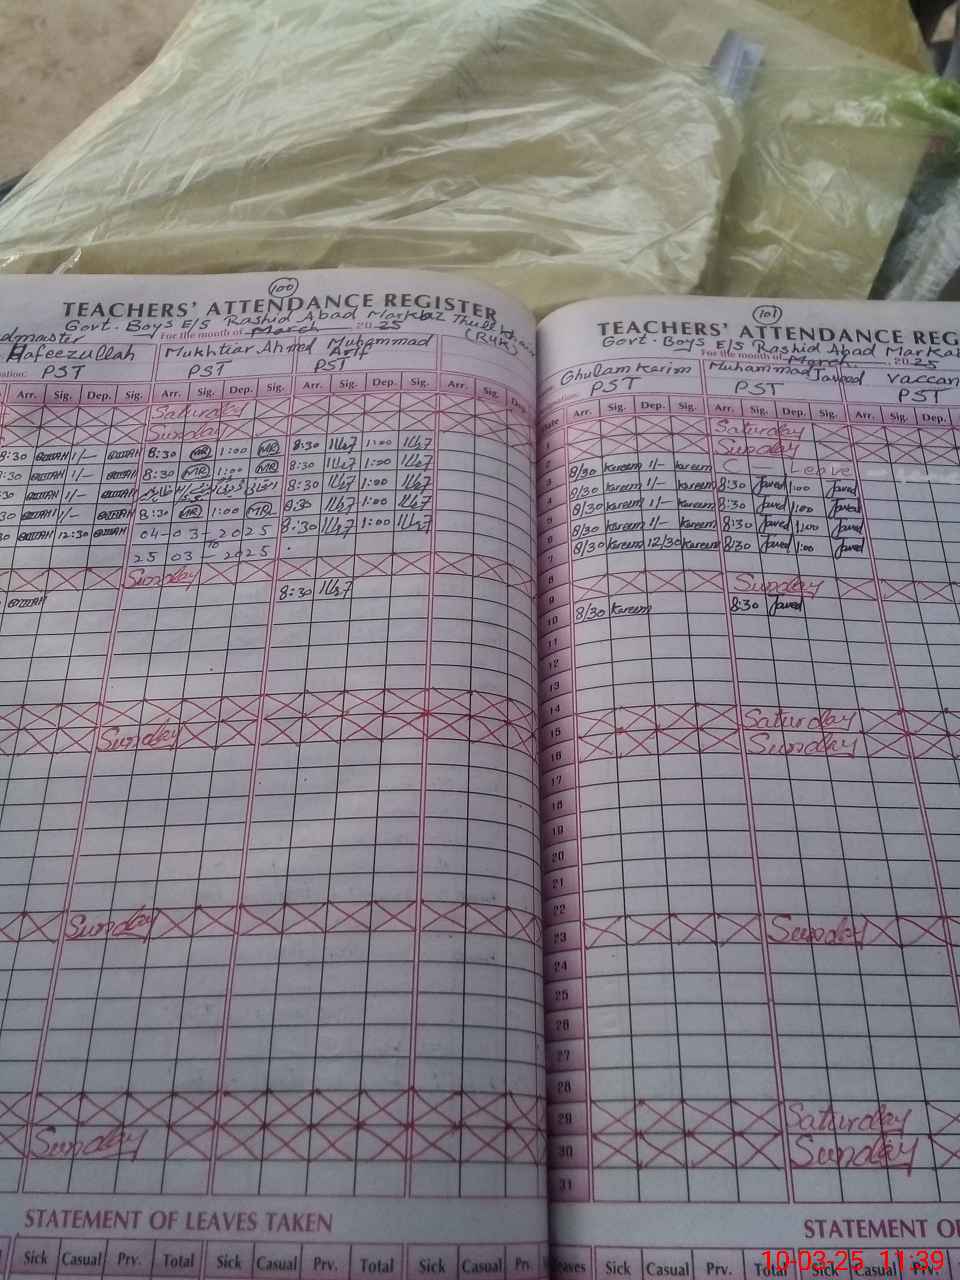 100
TEACHERS' ATTENDANCE REGISTER
Govt. Boys E/S Rashid Abad Markaz Thull
For the month of March 2025
(RYK)
dmaster
Hafeezullah Mukhtiar Ahmed Muhammad Arif
PST PST PST
Arr. Sig. Dep. Sig. Arr. Sig. Dep. Sig. Arr. Sig. Dep. Sig. Arr. Sig. Dep.
Saturday
Sunday
8:30 1/- 8:30 MR 1:00 MR 8:30 1:00
:30 1/- 8:30 MR 1:00 MR 8:30 1:00
30 1/- 8:30 1:00
30 1/- 8:30 MR 1:00 MR 8:30 1:00
30 12:30 04-03-2025 8:30 1:00
to
25 03-2025
Sunday
8:30
Sunday
Sunday
Sunday
STATEMENT OF LEAVES TAKEN
Sick Casual Prv. Total Sick Casual Prv. Total Sick Casual Prv.
101
TEACHERS' ATTENDANCE REG
Govt. Boys E/S Rashid Abad Marka
For the month of March. 2025
Ghulam Karim Muhammad Javeed vaccan
PST PST PST
Date Arr. Sig. Dep. Sig. Arr. Sig. Dep. Sig. Arr. Sig. Dep.
1 Saturday
2 Sunday
3 8/30 Kareem 1/- Kareem C — Leave
4 8/30 Kareem 1/- Kareem 8:30 Javed 1:00 Javed
5 8/30 Kareem 1/- Kareem 8:30 Javed 1:00 Javed
6 8/30 Kareem 1/- Kareem 8:30 Javed 1:00 Javed
7 8/30 Kareem 12/30 Kareem 8:30 Javed 1:00 Javed
8
9 Sunday
10 8/30 Kareem 8:30 Javed
11
12
13
14
15 Saturday
16 Sunday
17
18
19
20
21
22
23 Sunday
24
25
26
27
28
29 Saturday
30 Sunday
31
STATEMENT O
eaves Sick Casual Prv. Total Sick Casual Prv.
10-03-25 11:39